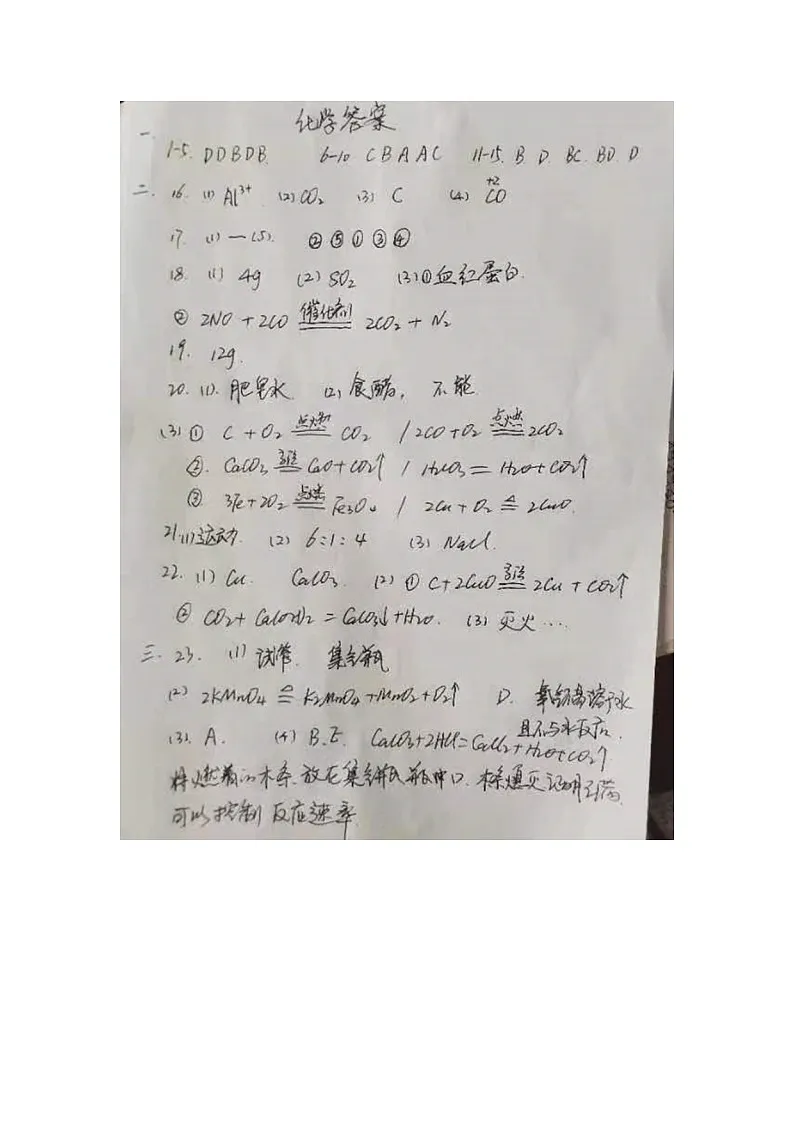 化学答案
一. 1-5. D D B D B. 6-10 C B A A C 11-15. B D. BC. BD. D
二. 16. (1) Al³⁺ (2) CO₂ (3) C (4) C⁺²O
17. (1)—(5). ②⑤①③④
18. (1) 4g (2) SO₂ (3)①血红蛋白.
② 2NO + 2CO 催化剂═ 2CO₂ + N₂
19. 12g.
20. (1). 肥皂水. (2) 食醋, 不能.
(3) ① C + O₂ 点燃═ CO₂ / 2CO + O₂ 点燃═ 2CO₂
②. CaCO₃ 高温═ CaO + CO₂↑ / H₂CO₃ = H₂O + CO₂↑
③ 3Fe + 2O₂ 点燃═ Fe₃O₄ / 2Cu + O₂ △═ 2CuO.
21.(1)运动. (2) 6:1:4 (3) NaCl.
22. (1) Cu. CaCO₃. (2) ① C + 2CuO 高温═ 2Cu + CO₂↑
② CO₂ + Ca(OH)₂ = CaCO₃↓ + H₂O. (3) 灭火....
三. 23. (1) 试管. 集气瓶
(2) 2KMnO₄ △═ K₂MnO₄ + MnO₂ + O₂↑ D. 氧气不易溶于水
且不与水反应.
(3). A. (4) B.E. CaCO₃ + 2HCl = CaCl₂ + H₂O + CO₂↑
将燃着的木条.放在集气瓶瓶口.木条熄灭证明已满.
可以控制反应速率.